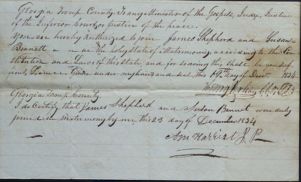 Georgia Troup County To any Minister of the Gospel, Judge, Justice
of the Inferior Court or Justice of the Peace
You are hereby Authorized to join James Shephard and
Bennett in the Holy state of Matrimony, according to the
and Laws of this State and for so doing this shall be your
License Given under my hand and seal this 19th day of Decr 1834
Georgia Troup County
I do Certify that James Shephard and Bennet were duly
joined in Matrimony by me this 23 day of December 1834
Harris J P